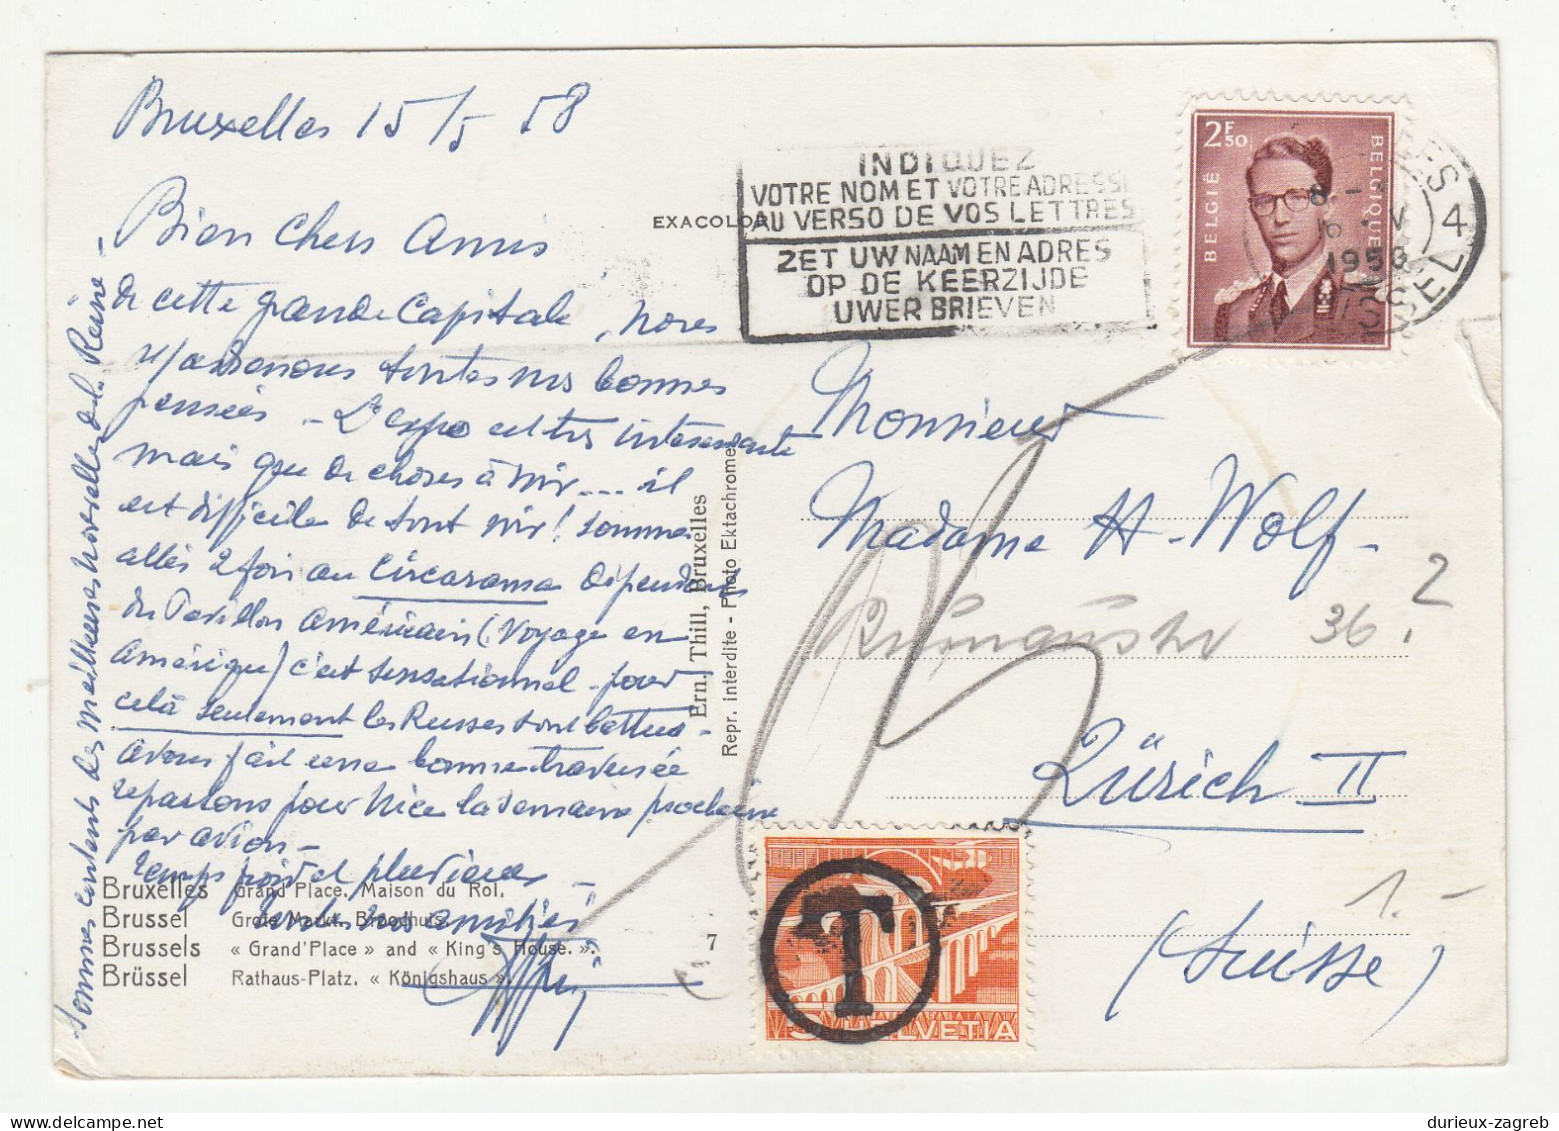 Bruxelles 15/5 58
Bien Chers Amis
de cette grande Capitale, vous
adressons toutes nos bonnes
pensées - L'expo est très intéressante
mais que de choses à voir .... il
est difficile de tout voir! Sommes
allés 2 fois au Circarama dépendant
du Pavillon Américain (Voyage en
Amérique) c'est sensationnel - pour
celà seulement les Russes sont battus -
avons fait une bonne traversée
repartons pour Nice la semaine prochaine
par avion -
Temps froid et pluvieux -
amitiés
Sommes contents des meilleures nouvelles de la Reine -
EXACOLOR
INDIQUEZ
VOTRE NOM ET VOTRE ADRESSE
AU VERSO DE VOS LETTRES
ZET UW NAAM EN ADRES
OP DE KEERZIJDE
UWER BRIEVEN
2F50
BELGIË
BELGIQUE
4
1958
Monsieur
Madame H. Wolf -
36.
2
Zürich II
(Suisse)
1.-
T
5 HELVETIA
Ern. Thill, Bruxelles
Repr. interdite - Photo Ektachrome
Bruxelles Grand'Place. Maison du Roi.
Brussel Grote Markt. Broodhuis.
Brussels « Grand'Place » and « King's House. ».
Brüssel Rathaus-Platz. « Königshaus ».
7
durieux-zagreb